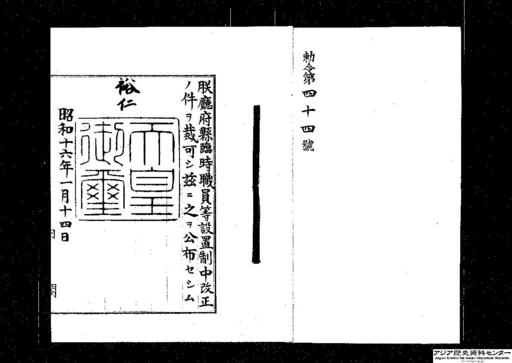 勅令第四十四號
朕廳府縣臨時職員等設置制中改正
ノ件ヲ裁可シ茲ニ之ヲ公布セシム
裕仁
天皇御璽
昭和十六年一月十四日
アジア歴史資料センター
Japan Center for Asian Historical Records